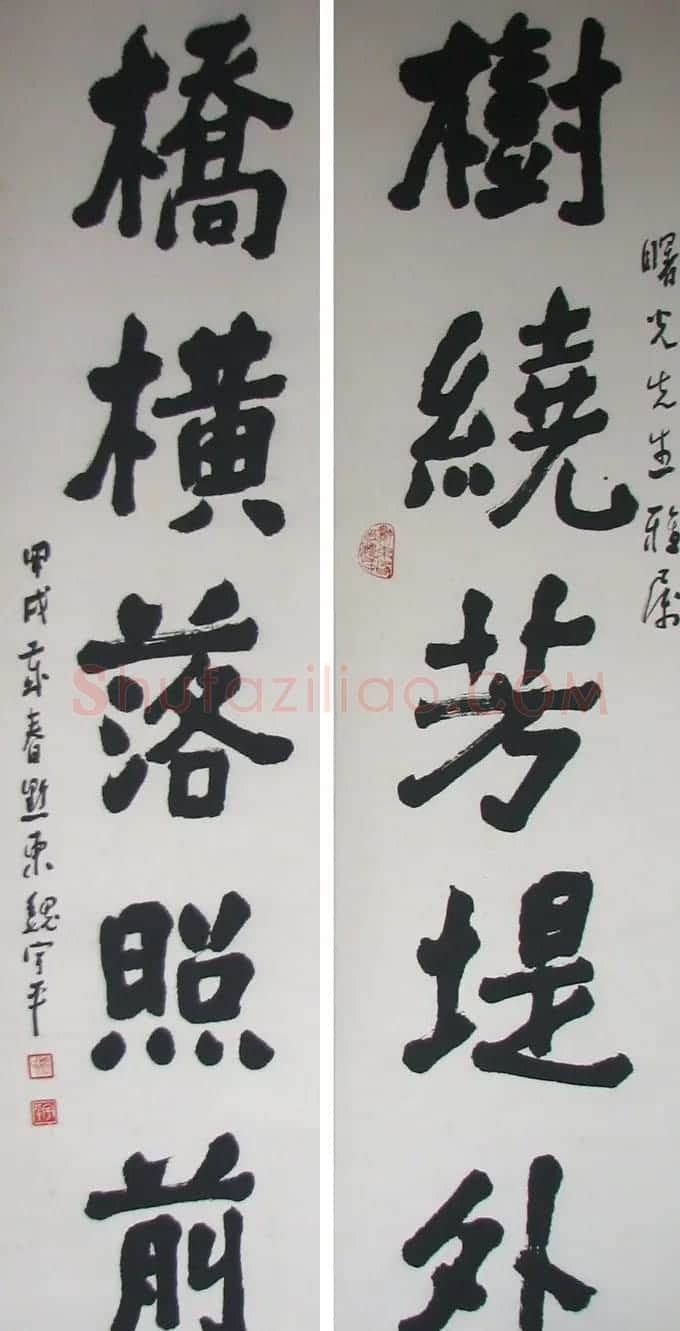 曙光先生雅属
樹繞芳堤外
橋橫落照前
甲戌年春黔東魏宇平
Shufaziliao.COM